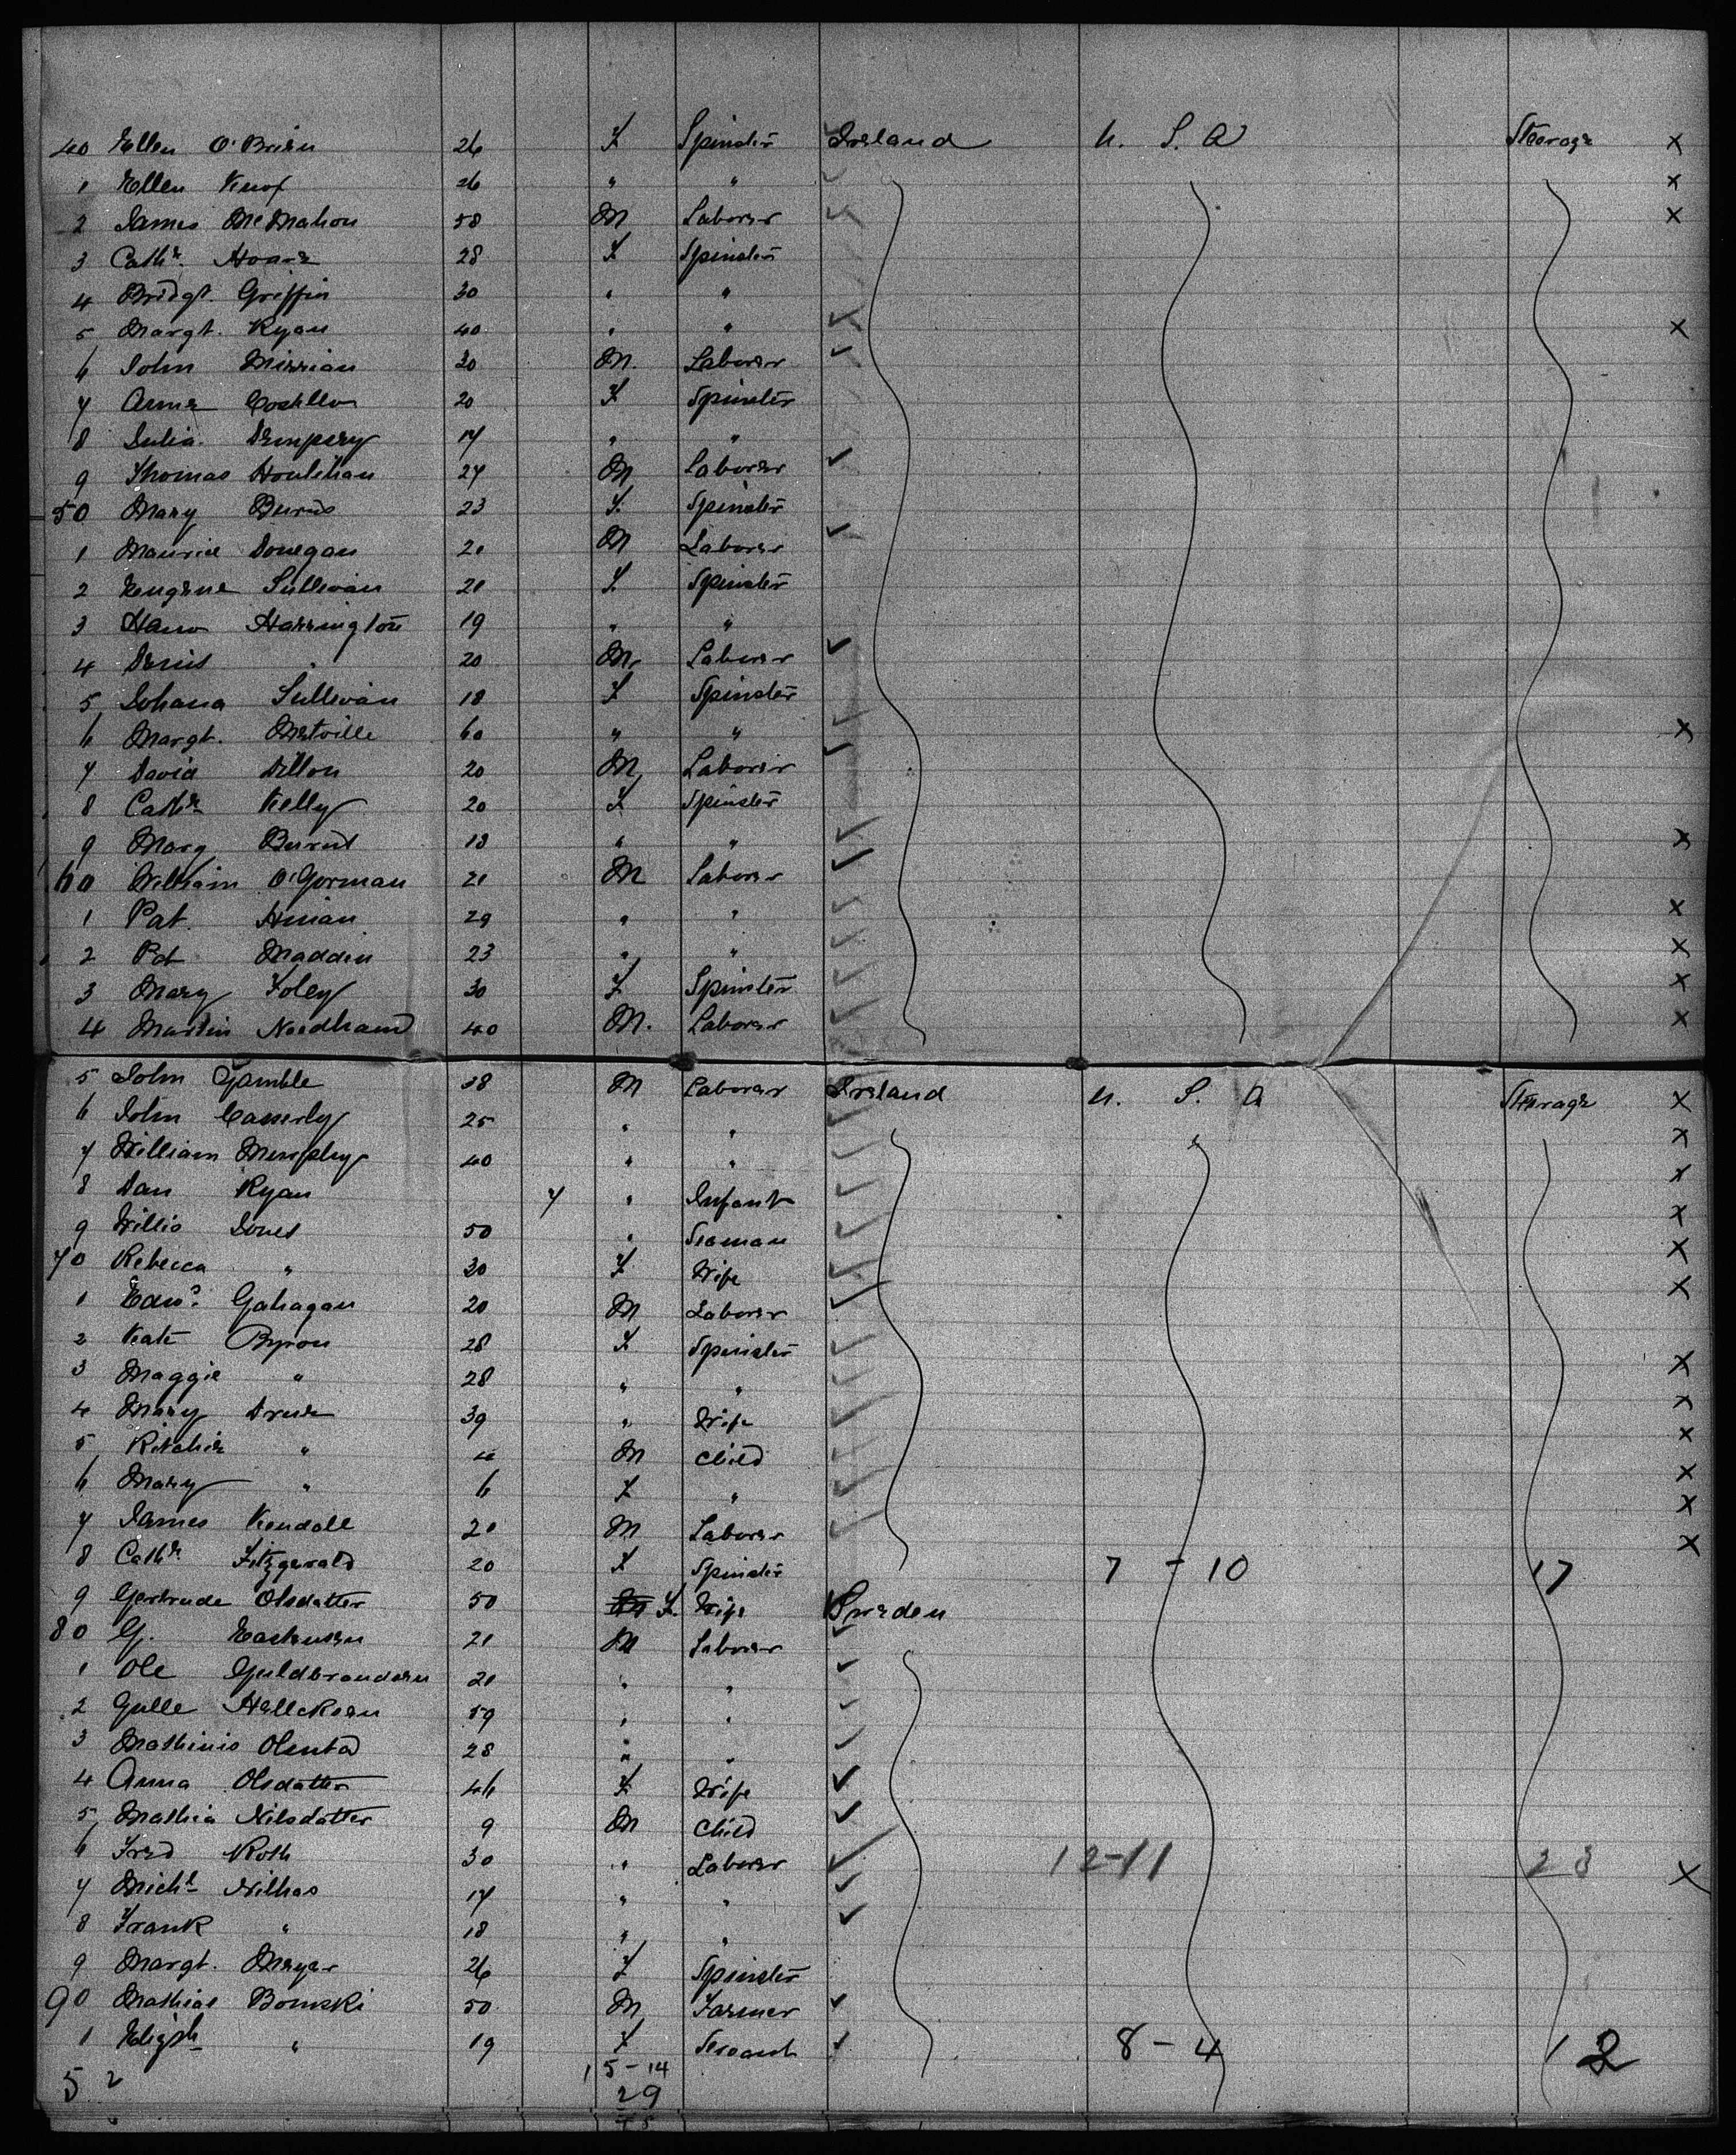 40 Ellen O'Brien 26 F Spinster Ireland U. S. A Steerage X
1 Ellen Knox 26 " " X
2 James McMahon 58 M Laborer X
3 Cathe. Hoare 28 F Spinster
4 Bridgt. Griffin 30 " "
5 Margt. Ryan 40 " " X
6 John 30 M. Laborer
7 Anne Costello 20 F Spinster
8 Julia Dempsey 17 " "
9 Thomas Houlihan 27 M Laborer
50 Mary Burns 23 F. Spinster
1 Maurice Donegan 21 M Laborer
2 Eugene Sullivan 21 F. Spinster
3 Hano Harrington 19 " "
4 Denis " 20 M. Laborer
5 Johana Sullivan 18 F Spinster
6 Margt. 60 " " X
7 David Dillon 20 M, Laborer
8 Cathe Kelly 20 F Spinster
9 Mary 18 " " X
60 William O'Gorman 21 M Laborer
1 Pat. 29 " " X
2 Pat Madden 23 " " X
3 Mary Foley 30 F Spinster X
4 Martin Needham 40 M. Laborer X
5 John Gamble 38 M Laborer Ireland U. S. A Steerage X
6 John Casserly 25 " " X
7 William Murphy 40 " " X
8 Dan Ryan 7 " Infant X
9 Willis Jones 50 " Seaman X
70 Rebecca " 30 F Wife X
1 Edwd. Gahagan 20 M Laborer
2 Kate Byron 28 F Spinster X
3 Maggie " 28 " " X
4 Mary 39 " Wife X
5 Ritchie " 4 M Child X
6 Mary " 6 F " X
7 James Kendall 20 M Laborer X
8 Cathe Fitzgerald 20 F Spinster 7 - 10 17
9 Gertrude Olsdatter 50 F. Wife Sweden
80 G. 21 M Laborer
1 Ole Guldbrandsen 21 " "
2 Gulle 59 " "
3 Mathinis 28 " "
4 Anna Olsdatter 46 F Wife
5 Mathia Nilsdatter 9 M Child
6 Fred Roth 30 " Laborer 12-11 23 X
7 Michl 17 " "
8 Frank " 18 " "
9 Margt. Meyer 26 F Spinster
90 Mathias Bomski 50 M, Farmer
1 Elizth " 19 F Servant 8 - 4 12
52 15 - 14
29